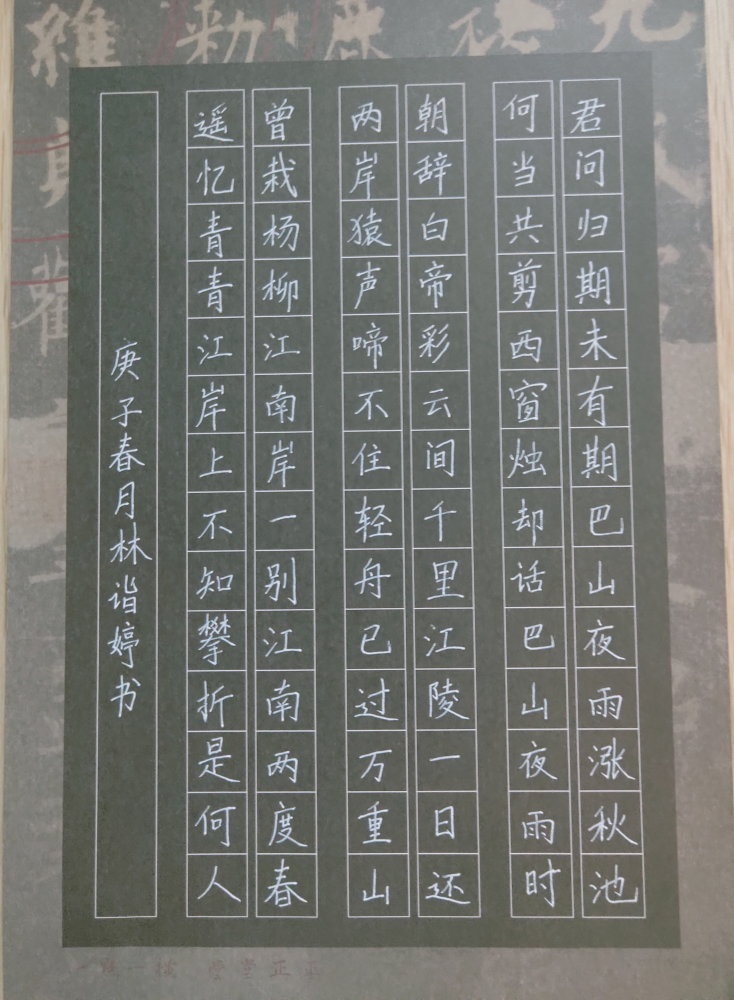 君问归期未有期巴山夜雨涨秋池
何当共剪西窗烛却话巴山夜雨时
朝辞白帝彩云间千里江陵一日还
两岸猿声啼不住轻舟已过万重山
曾栽杨柳江南岸一别江南两度春
遥忆青青江岸上不知攀折是何人
庚子春月林诣婷书